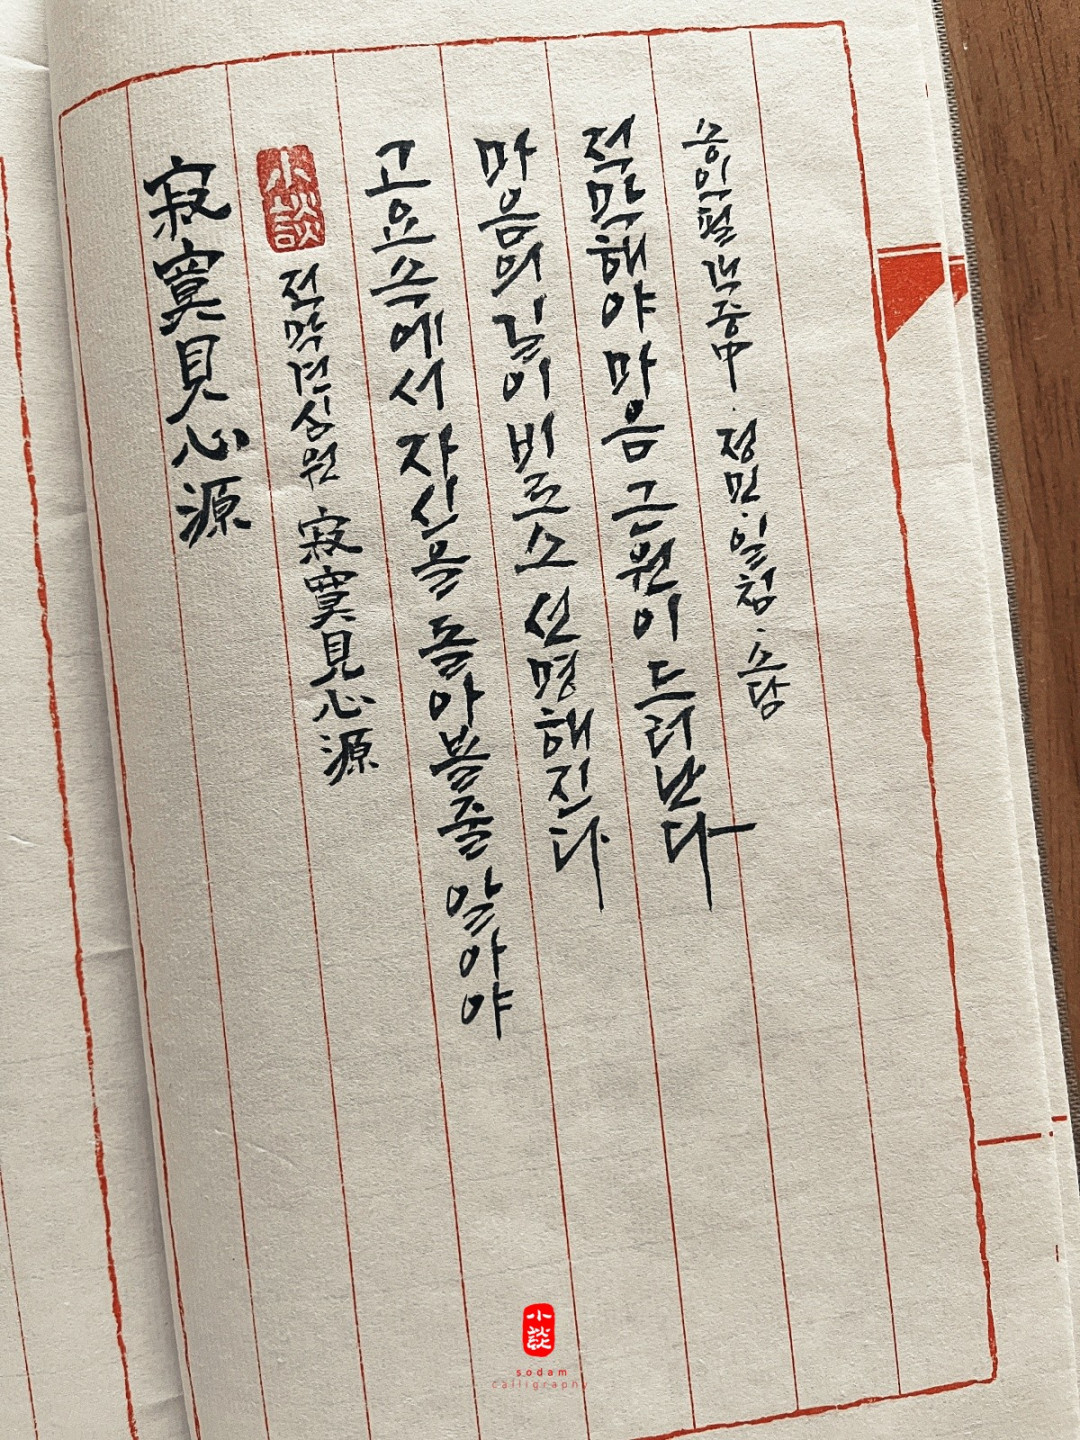 寂寞見心源
小談
적막견심원 寂寞見心源
고요 속에서 자신을 돌아볼 줄 알아야
마음의 길이 비로소 선명해진다.
적막해야 마음 근원이 드러난다
송익필 객중中·정민·일침·소담
小談
sodam
calligraphy